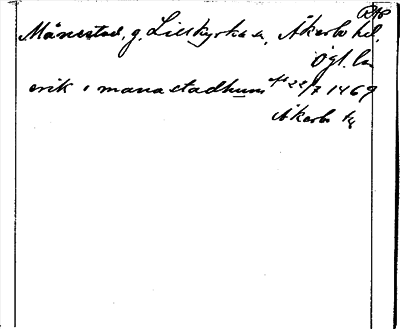 Månestad, g. Lillkyrka sn, Åkerbo hd,
Ögl. län
erik i manastadhum 22/7 1469
Åkerbo